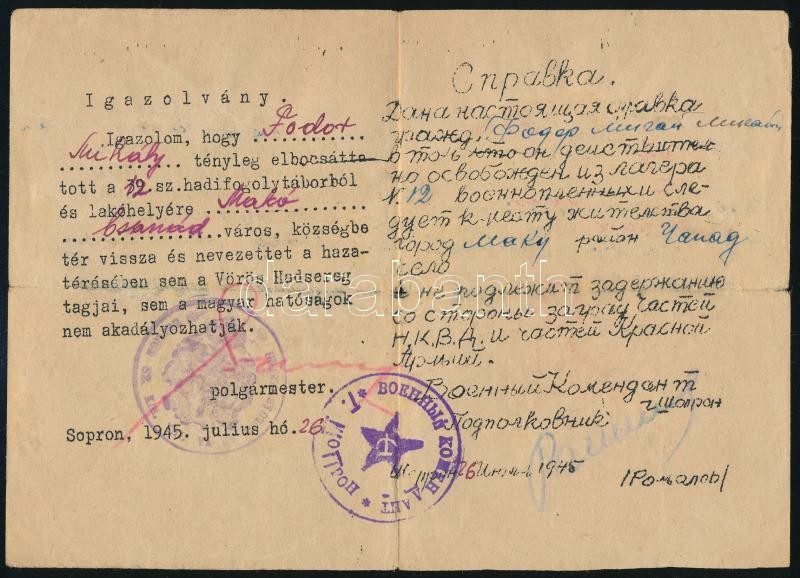 Igazolvány.
Igazolom, hogy Fodor
Mihály tényleg elbocsátta-
tott a 12 sz.hadifogolytáborból
és lakóhelyére Makó
Csanád város, községbe
tér vissza és nevezettet a haza-
térésében sem a Vörös Hadsereg
tagjai, sem a magyar hatóságok
nem akadályozhatják.
polgármester.
Sopron, 1945. július hó.26
Справка.
Дана настоящая справка
гражд. Фодер Мигай
в том что он действител
но освобожден из лагера
N 12 военнопленных и сле-
дует к месту жителства
город Маку район Чанад
село
и не подлежит задержанию
со стороны заград частей
Н.К.В.Д. и частей Красной
Армий.
Военный Комендант
г Шопрон
Подполковник
26 1945
ВОЕННЫЙ КОМЕНДАНТ
darabanth